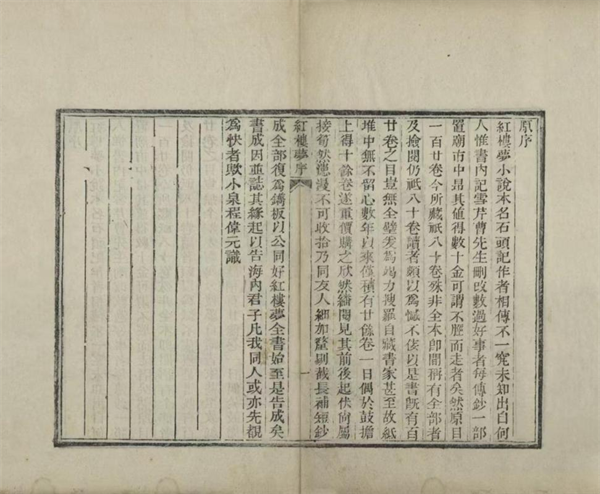 原序
紅樓夢小說本名石頭記作者相傳不一究未知出自何
人惟書內記雪芹曹先生刪改數過好事者每傳鈔一部
置廟市中昂其值得數十金可謂不脛而走者矣然原目
一百廿卷今所藏祗八十卷殊非全本即間稱有全部者
及檢閱仍祗八十卷讀者頗以爲憾不佞以是書旣有百
廿卷之目豈無全璧爰爲竭力搜羅自藏書家甚至故紙
堆中無不留心數年以來僅積有廿餘卷一日偶於鼓擔
上得十餘卷遂重價購之欣然繙閱見其前後起伏尚屬
接筍然漶漫不可收拾乃同友人細加釐剔截長補短鈔
紅樓夢序 一
成全部復爲鐫板以公同好紅樓夢全書始至是告成矣
書成因並誌其緣起以告海內君子凡我同人或亦先覩
爲快者歟小泉程偉元識